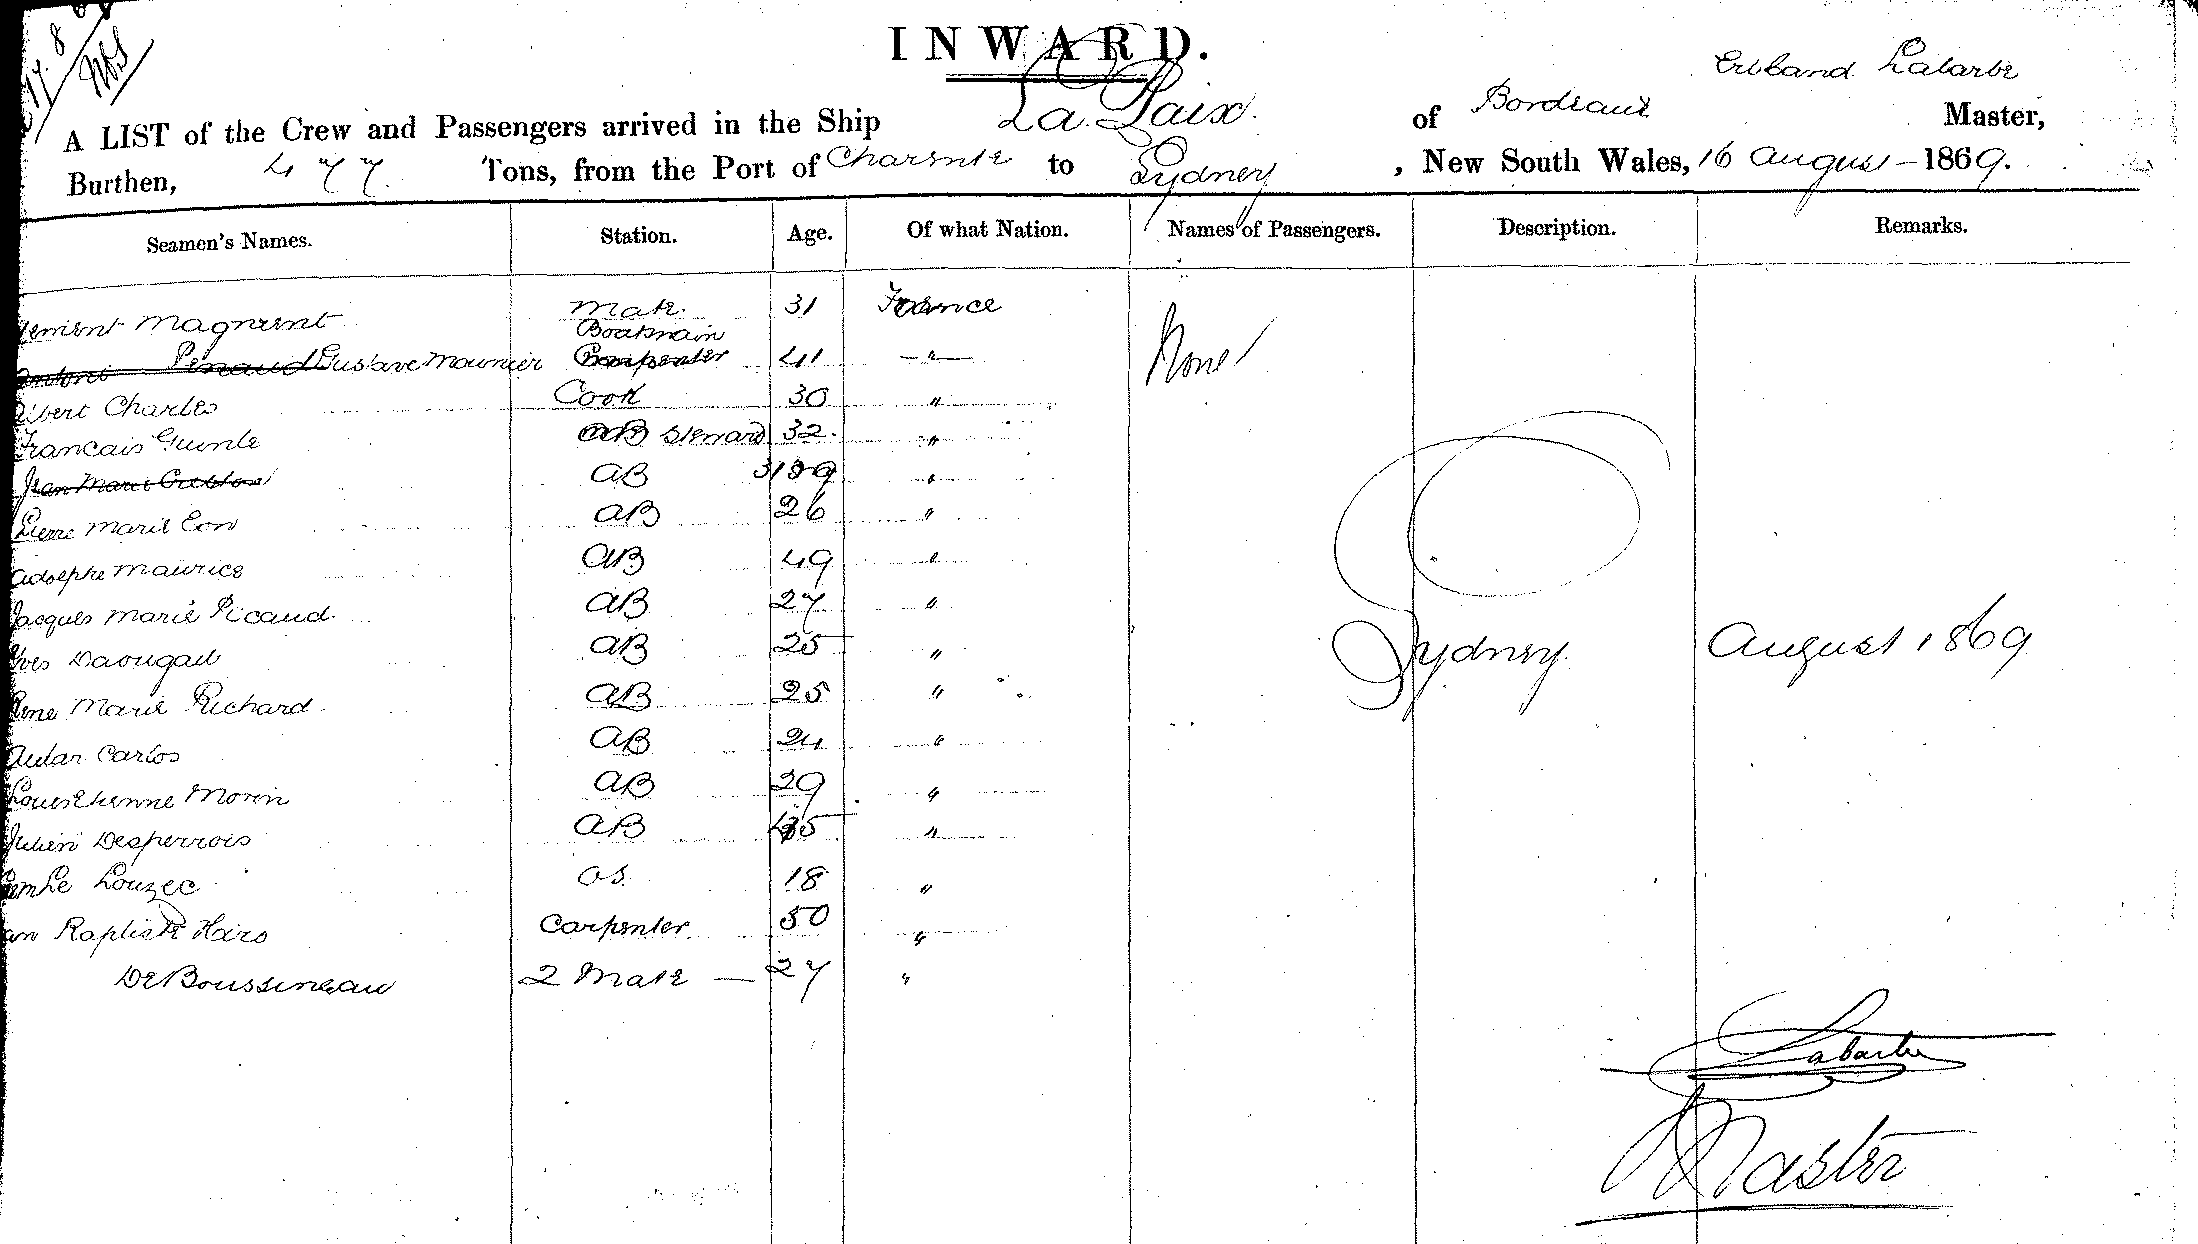 17. 8
INWARD.
Labarbe
A LIST of the Crew and Passengers arrived in the Ship La Paix. of Bordeaux Master,
Burthen, 477 Tons, from the Port of Charente to Sydney, New South Wales, 16 August - 1869.
Seamen's Names. Station. Age. Of what Nation. Names of Passengers. Description. Remarks.
Magnient Mate. 31 France None
Boatswain
Penaud Gustave Mounier Carpenter 41 "
Charles Cook 30 "
Francais Guinle AB Steward 32. "
Jean Marie AB "
Pierre Marie Eon AB 26 "
Adolphe Maurice AB 49 "
Jacques Marie Picaud AB 27 "
Yves Daougad AB 25 "
Sydney August 1869
Rene Marie Richard AB 25 "
Carlos AB 24 "
Louis Etienne Morin AB 29 "
Julien Desperrois AB "
Le Louzec OS. 18 "
Carpenter 50 "
De Boussineau 2 Mate — 27 "
Labarbe
Master